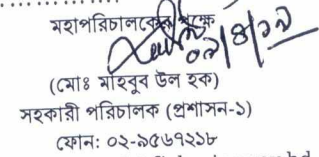 মহাপরিচালকের পক্ষে
০৯/৪/১৯
(মোঃ মাহবুব উল হক)
সহকারী পরিচালক (প্রশাসন-১)
ফোন: ০২-৯৫৬৭২১৮